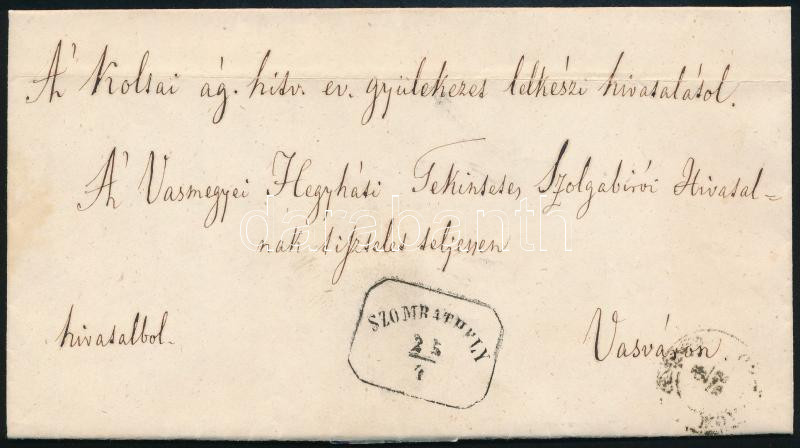 A' Kolsai ág. hitv. ev. gyülekezet lelkészi hivatalától.
A' Vasmegyei Hegyháti Tekintetes, Szolgabirói Hivatal=
nak tisztelet teljessen
darabanth
SZOMBATHELY
hivatalbol.
Vasváron.